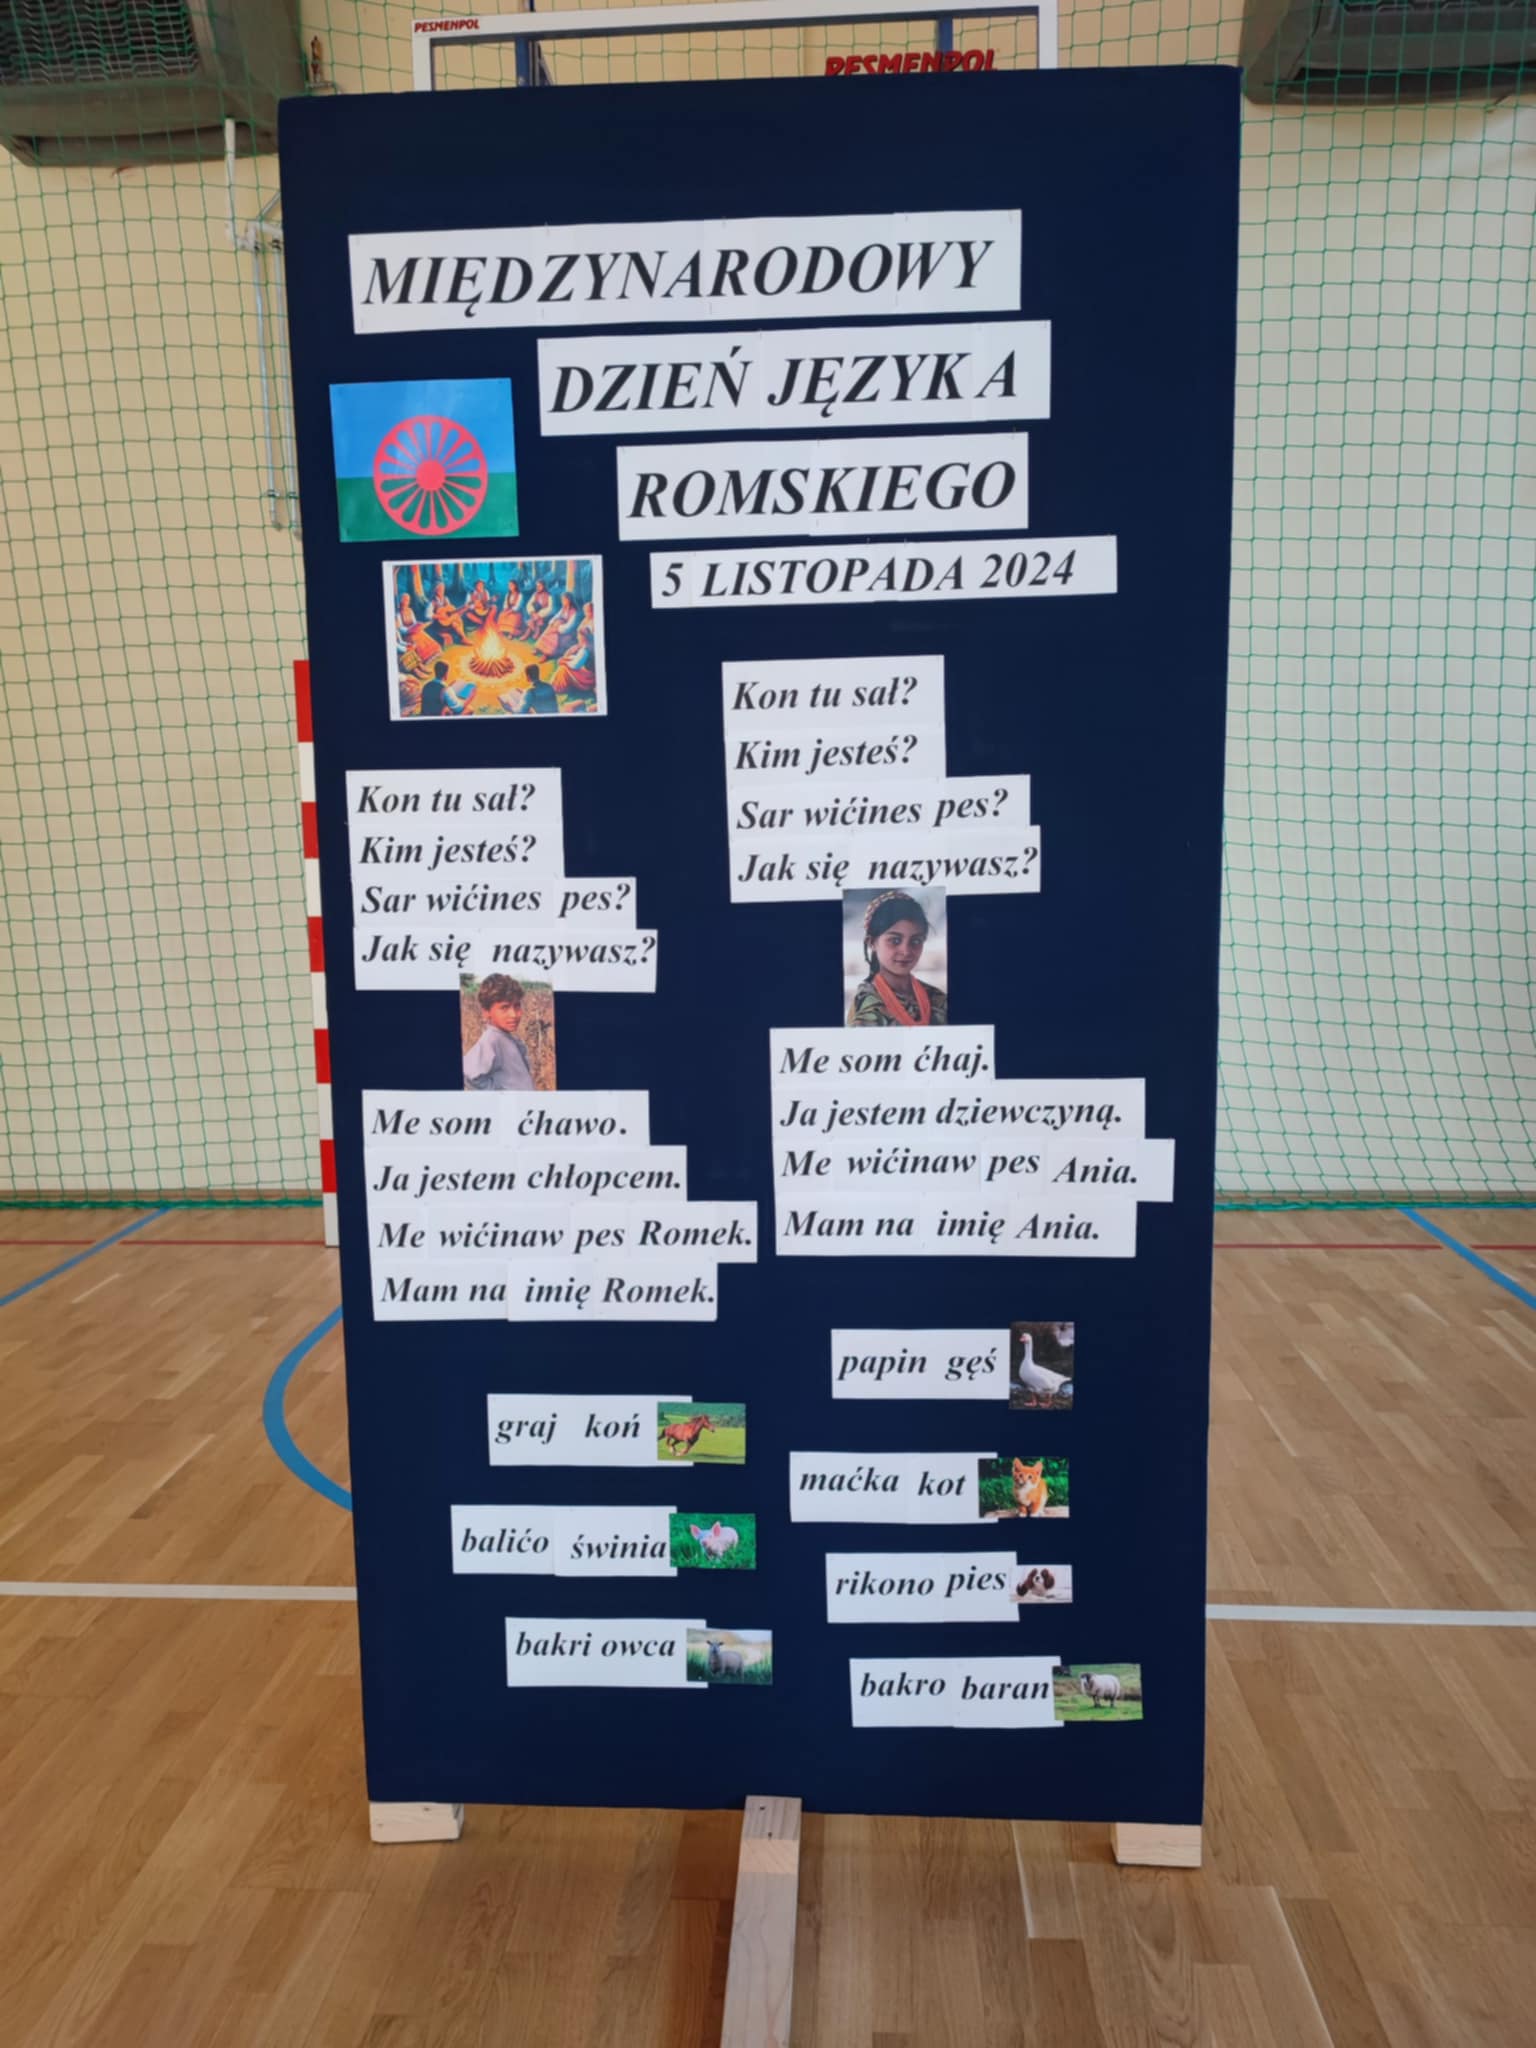 PESMENPOL
PESMENPOL
MIĘDZYNARODOWY
DZIEŃ JĘZYKA
ROMSKIEGO
5 LISTOPADA 2024
Kon tu sał?
Kim jesteś?
Sar wićines pes?
Jak się nazywasz?
Me som ćhawo.
Ja jestem chłopcem.
Me wićinaw pes Romek.
Mam na imię Romek.
Kon tu sał?
Kim jesteś?
Sar wićines pes?
Jak się nazywasz?
Me som ćhaj.
Ja jestem dziewczyną.
Me wićinaw pes Ania.
Mam na imię Ania.
graj koń
balićo świnia
bakri owca
papin gęś
maćka kot
rikono pies
bakro baran